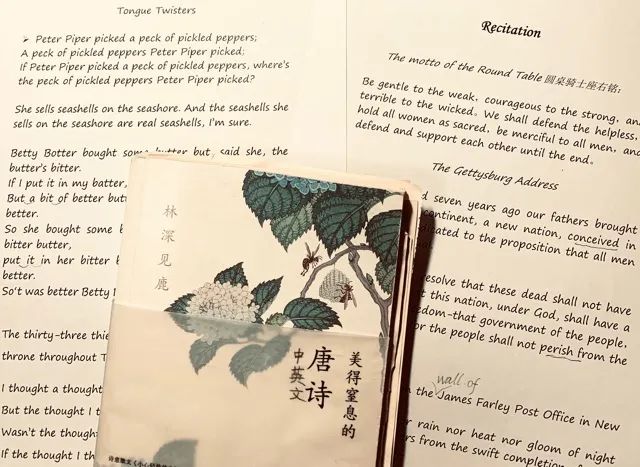 Tongue Twisters
➢ Peter Piper picked a peck of pickled peppers;
A peck of pickled peppers Peter Piper picked;
If Peter Piper picked a peck of pickled peppers, where's
the peck of pickled peppers Peter Piper picked?
She sells seashells on the seashore. And the seashells she
sells on the seashore are real seashells, I'm sure.
Betty Botter bought some butter but, said she, the
butter's bitter.
If I put it in my batter,
But a bit of better but
better.
So she bought some b
bitter butter,
put it in her bitter b
better.
So't was better Betty
The thirty-three thie
throne throughout T
I thought a thought
But the thought I t
Wasn't the though
If the thought I t
Recitation
The motto of the Round Table 圆桌骑士座右铭:
Be gentle to the weak, courageous to the strong, an
terrible to the wicked. We shall defend the helpless,
hold all women as sacred, be merciful to all men, and
defend and support each other until the end.
The Gettysburg Address
d seven years ago our fathers brought
continent, a new nation, conceived in
dicated to the proposition that all men
al.
esolve that these dead shall not have
t this nation, under God, shall have a
edom-that government of the people,
or the people shall not perish from the
wall of
n the James Farley Post Office in New
r rain nor heat nor gloom of night
rs from the swift completion
林深见鹿
美得窒息的
唐诗
中英文